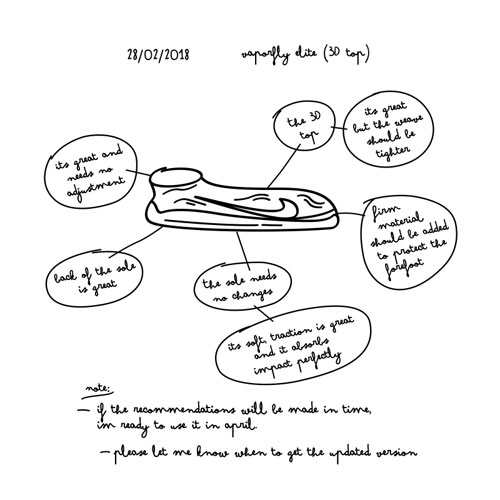 28/02/2018
vaporfly elite (3D top)
the 3D
top
its great
but the weave
should be
tighter
its great and
needs no
adjustment
firm
material
should be added
to protect the
forefoot
back of the sole
is great
the sole needs
no changes
its soft, traction is great
and it absorbs
impact perfectly
note:
— if the recommendations will be made in time,
im ready to use it in april.
— please let me know when to get the updated version